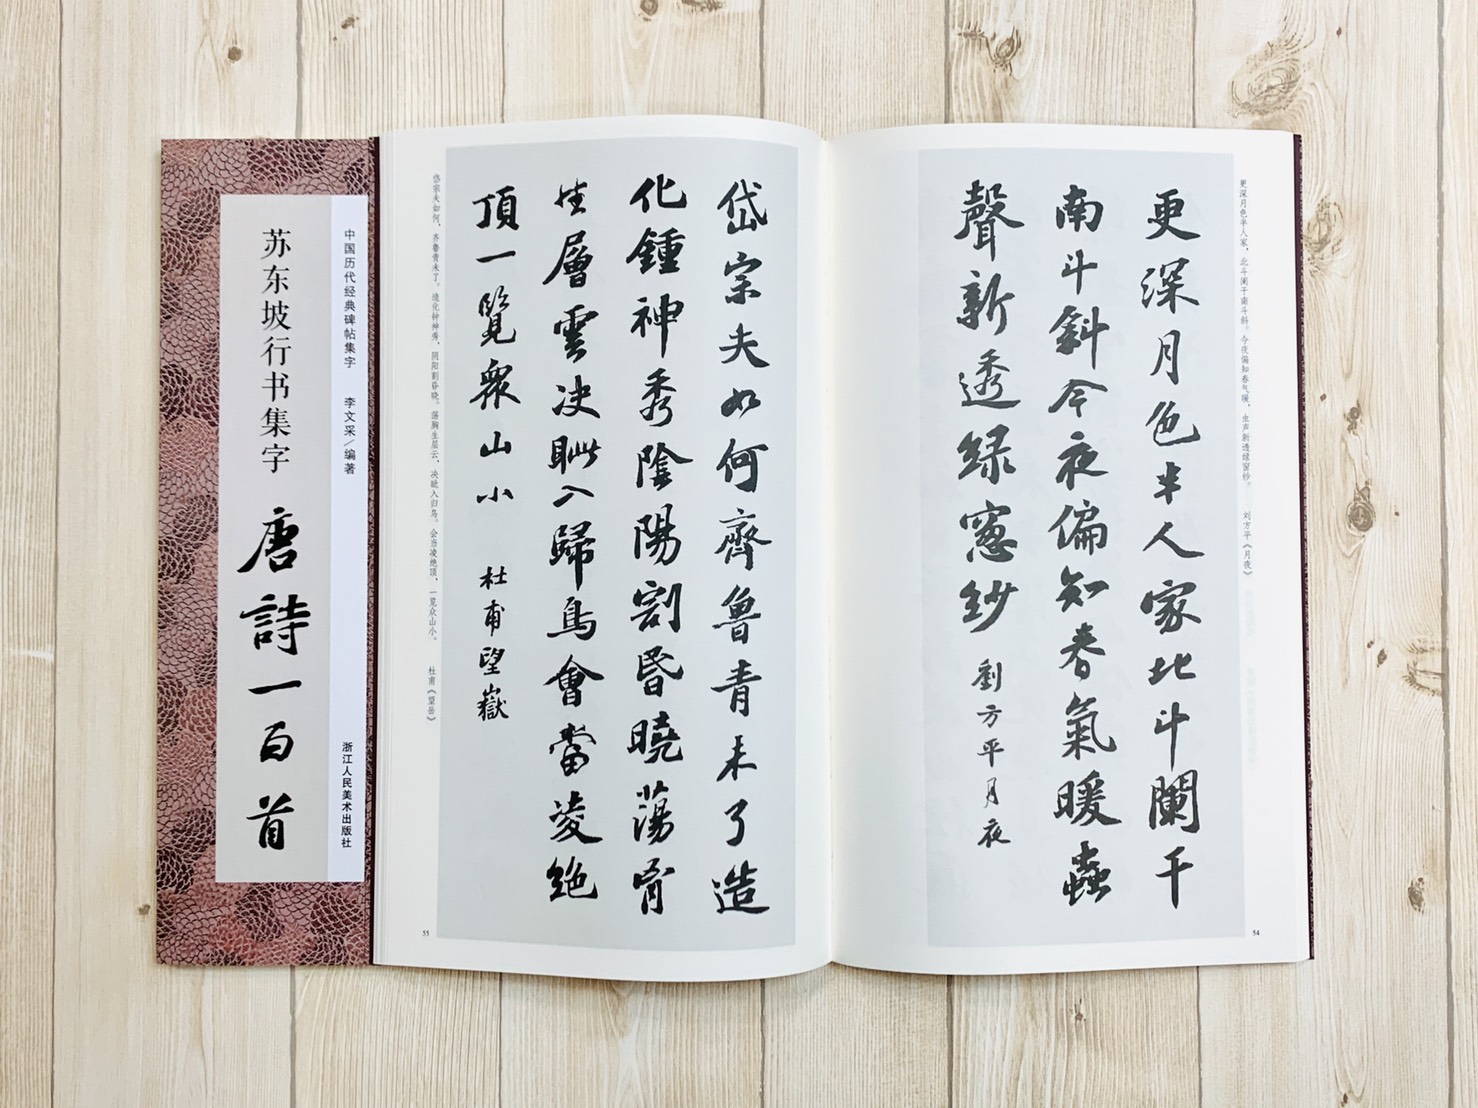 更深月色半人家，北斗阑干南斗斜。今夜偏知春气暖，虫声新透绿窗纱。 刘方平《月夜》
更深月色半人家北斗闌干
南斗斜今夜偏知春氣暖蟲
聲新透緑窻紗 劉方平月夜
54
岱宗夫如何齊魯青未了造
化鍾神秀陰陽割昬曉蕩胷
生層雲決眦入歸鳥會當凌絶
頂一覽衆山小 杜甫望嶽
岱宗夫如何，齐鲁青未了。造化钟神秀，阴阳割昏晓。荡胸生层云，决眦入归鸟。会当凌绝顶，一览众山小。 杜甫《望岳》
55
中国历代经典碑帖集字 李文采/编著 浙江人民美术出版社
苏东坡行书集字 唐詩一百首